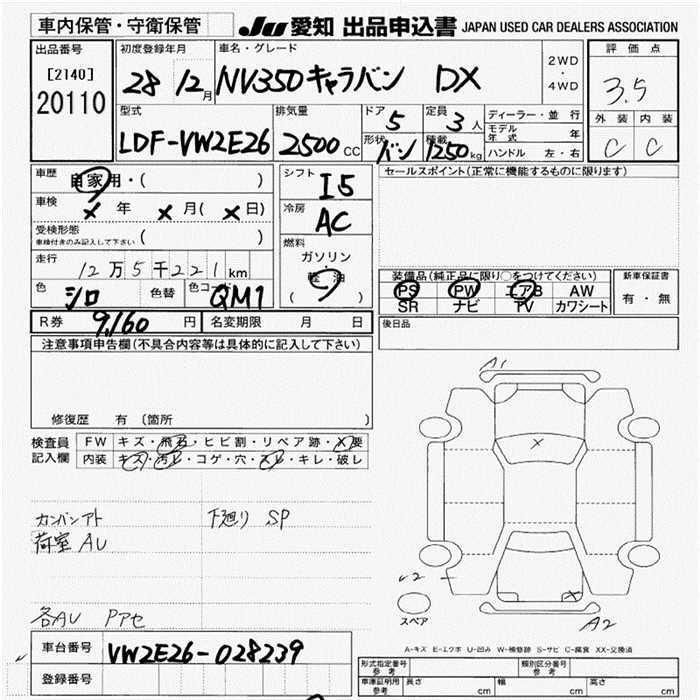 車内保管・守衛保管
JU 愛知 出品申込書 JAPAN USED CAR DEALERS ASSOCIATION
出品番号
[2140]
20110
初度登録年月
28 12月
車名・グレード
NV350キャラバン DX
2WD
・
4WD
評価点
3.5
外装 内装
C C
型式
LDF-VW2E26
排気量
2500cc
ドア 5
定員 3人
形状 バン
積載 1250kg
ディーラー・並行
モデル年式 年
ハンドル 左・右
車歴 自家用・( )
車検 × 年 × 月( × 日)
受検形態
車検付きのみ記入して下さい ( )
走行 12万5千221km
色 シロ 色替 色コード QM1
R券 9,160円 名変期限 月 日
シフト I5
冷房 AC
燃料
ガソリン
軽油
( )
セールスポイント(正常に機能するものに限ります)
装備品(純正品に限り○をつけてください)
PS PW エアB AW
SR ナビ TV カワシート
新車保証書
有・無
後日品
注意事項申告欄(不具合内容等は具体的に記入して下さい)
修復歴 有 〔箇所 〕
検査員記入欄
FW キズ・飛石・ヒビ割・リペア跡・X要
内装 キズ・汚レ・コゲ・穴・スレ・キレ・破レ
カンバンアト 下廻り SP
荷室AU
各AU Pアセ
A1
X
X
A2
スペア
A-キズ E-エクボ U-凹み W-補修跡 S-サビ C-腐食 XX-交換済
車台番号 VW2E26-028239
登録番号
形式指定番号 参考
類別区分番号 参考
車庫証明用 参考 長さ cm 幅 cm 高さ cm